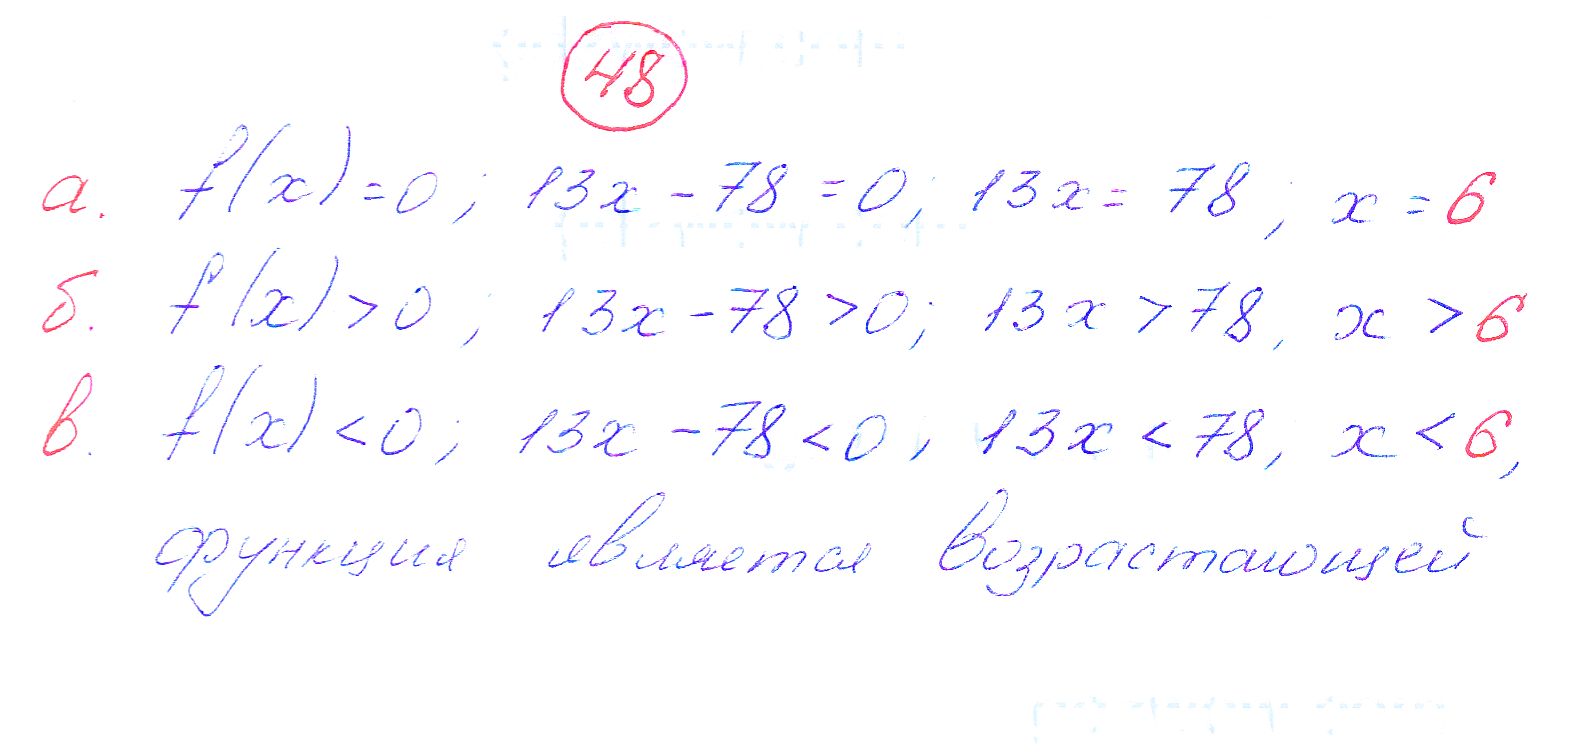 48
а. f(x)=0; 13x-78=0; 13x=78; x=6
б. f(x)>0; 13x-78>0; 13x>78, x>6
в. f(x)<0; 13x-78<0, 13x<78, x<6,
функция является возрастающей